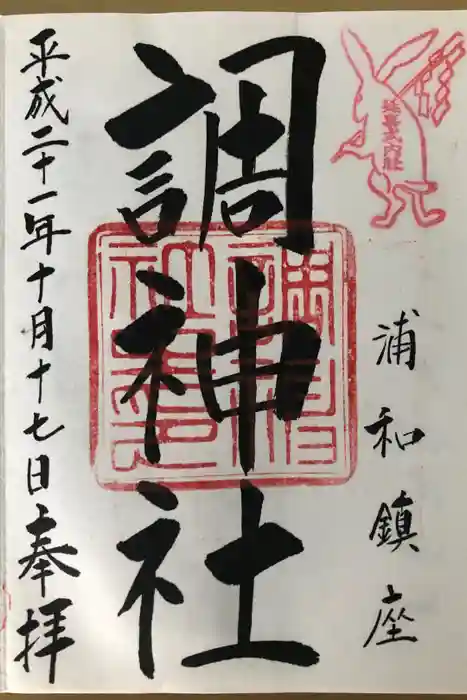 延喜式内社
浦和鎮座
調神社
平成二十一年十月十七日奉拝